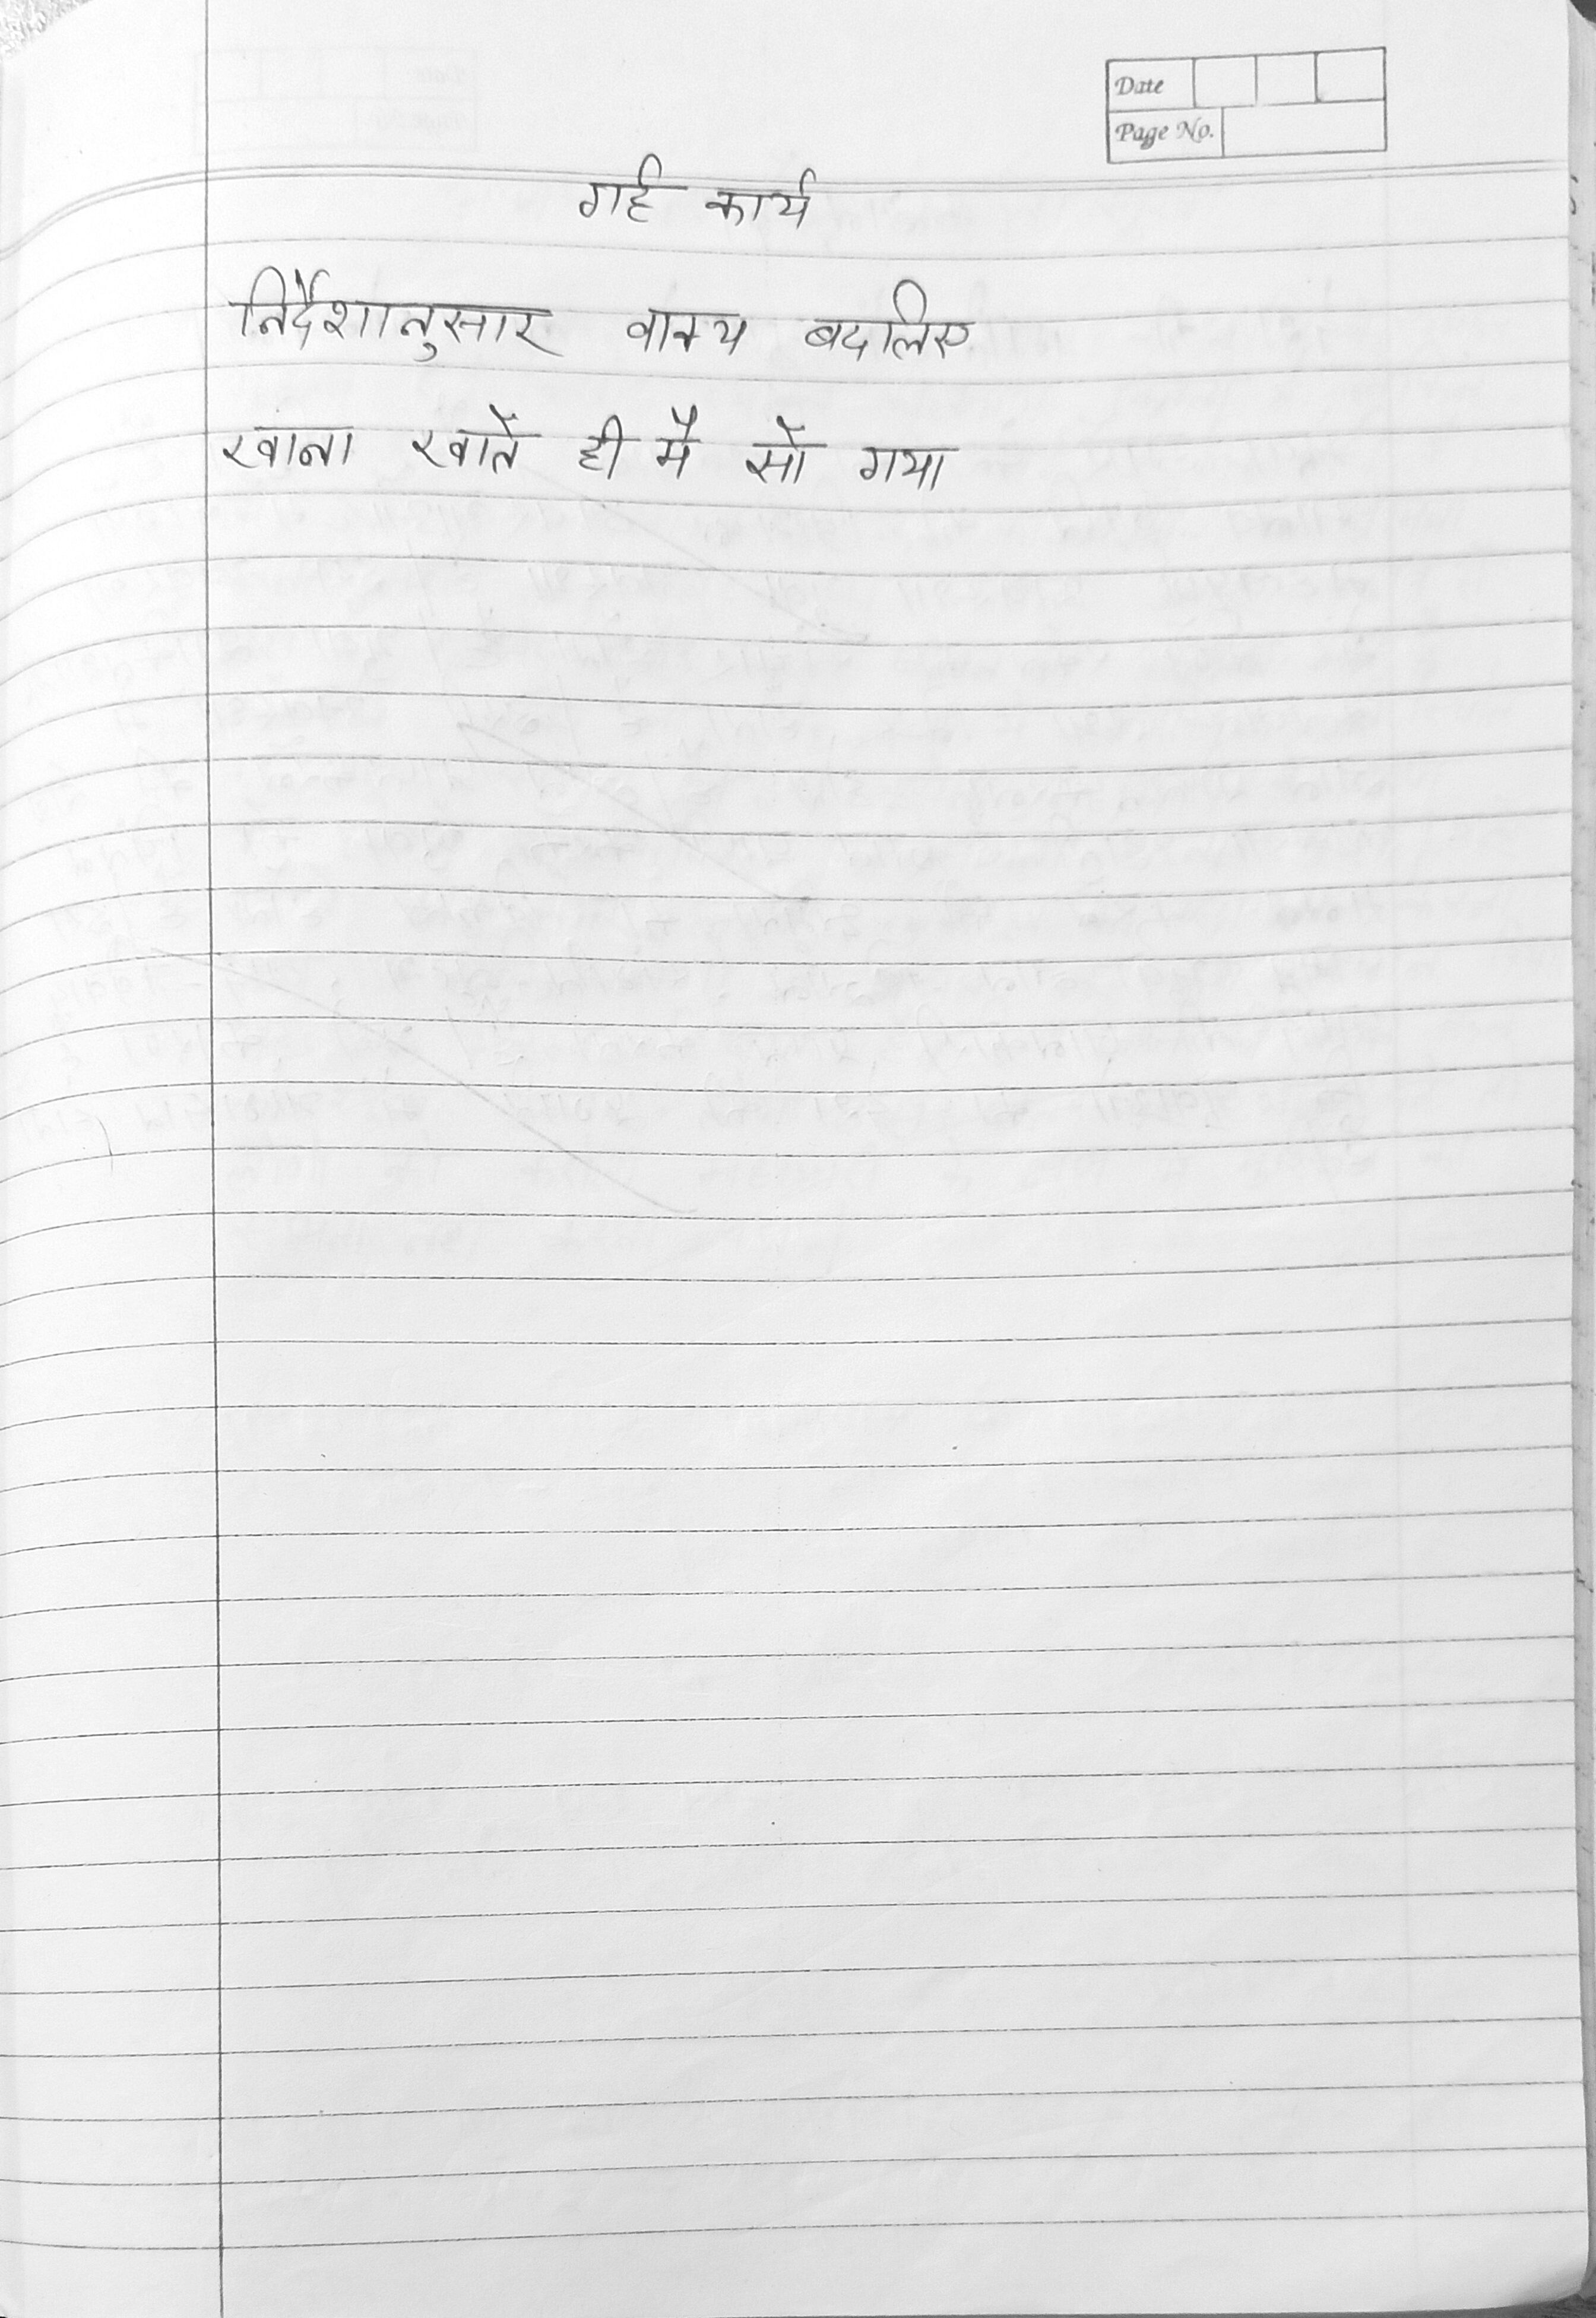 Date
Page No.
गर्ह कार्य
निर्देशानुसार वाक्य बदलिए
खाना खाते ही मै सो गया